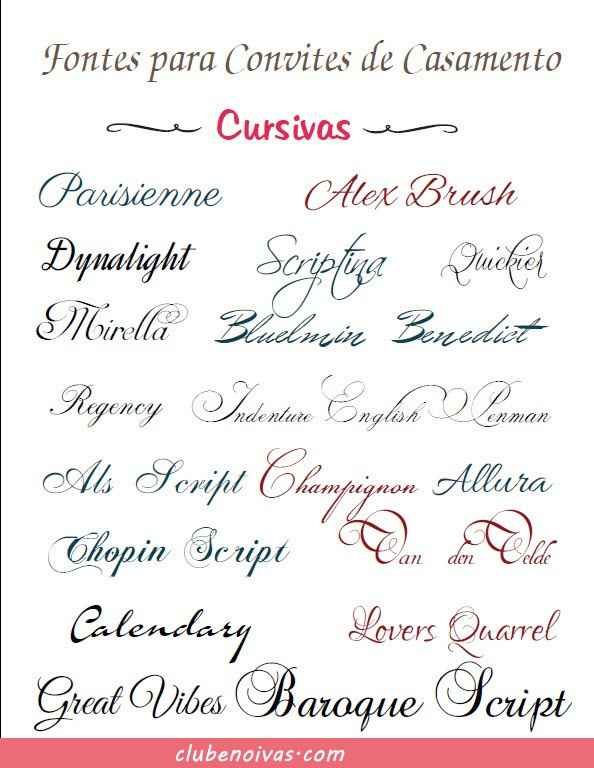 Fontes para Convites de Casamento
Cursivas
Parisienne Alex Brush
Dynalight Scriptina Quickier
Mirella Bluelmin Benedict
Regency Indenture English Penman
Als Script Champignon Allura
Chopin Script Van den Velde
Calendary Lovers Quarrel
Great Vibes Baroque Script
clubenoivas.com